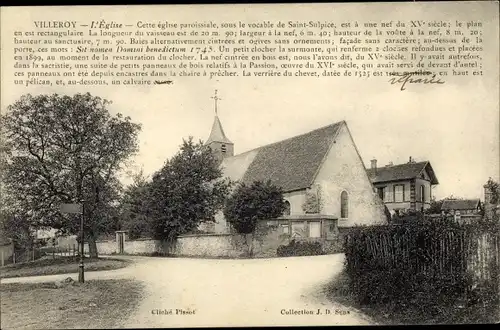 VILLEROY — L'Église — Cette église paroissiale, sous le vocable de Saint-Sulpice, est à une nef du XVe siècle ; le plan
en est rectangulaire La longueur du vaisseau est de 20 m. 90 ; largeur à la nef, 6 m. 40 ; hauteur de la voûte à la nef, 8 m. 20 ;
hauteur au sanctuaire, 7 m. 90. Baies alternativement cintrées et ogives sans ornements ; façade sans caractère ; au-dessus de la
porte, ces mots : Sit nomen Domini benedictum 1745. Un petit clocher la surmonte, qui renferme 2 cloches refondues et placées
en 1899, au moment de la restauration du clocher. La nef cintrée en bois est, nous l'avons dit, du XVe siècle. Il y avait autrefois,
dans la sacristie, une suite de petits panneaux de bois relatifs à la Passion, œuvre du XVIe siècle, qui servaient de devant d'autel ;
ces panneaux ont été depuis encastrés dans la chaire à prêcher. La verrière du chevet, datée de 1525 est très mutilée ; en haut est
un pélican, et, au-dessous, un calvaire
réparée
Cliché Pissot
Collection J. D. Sens